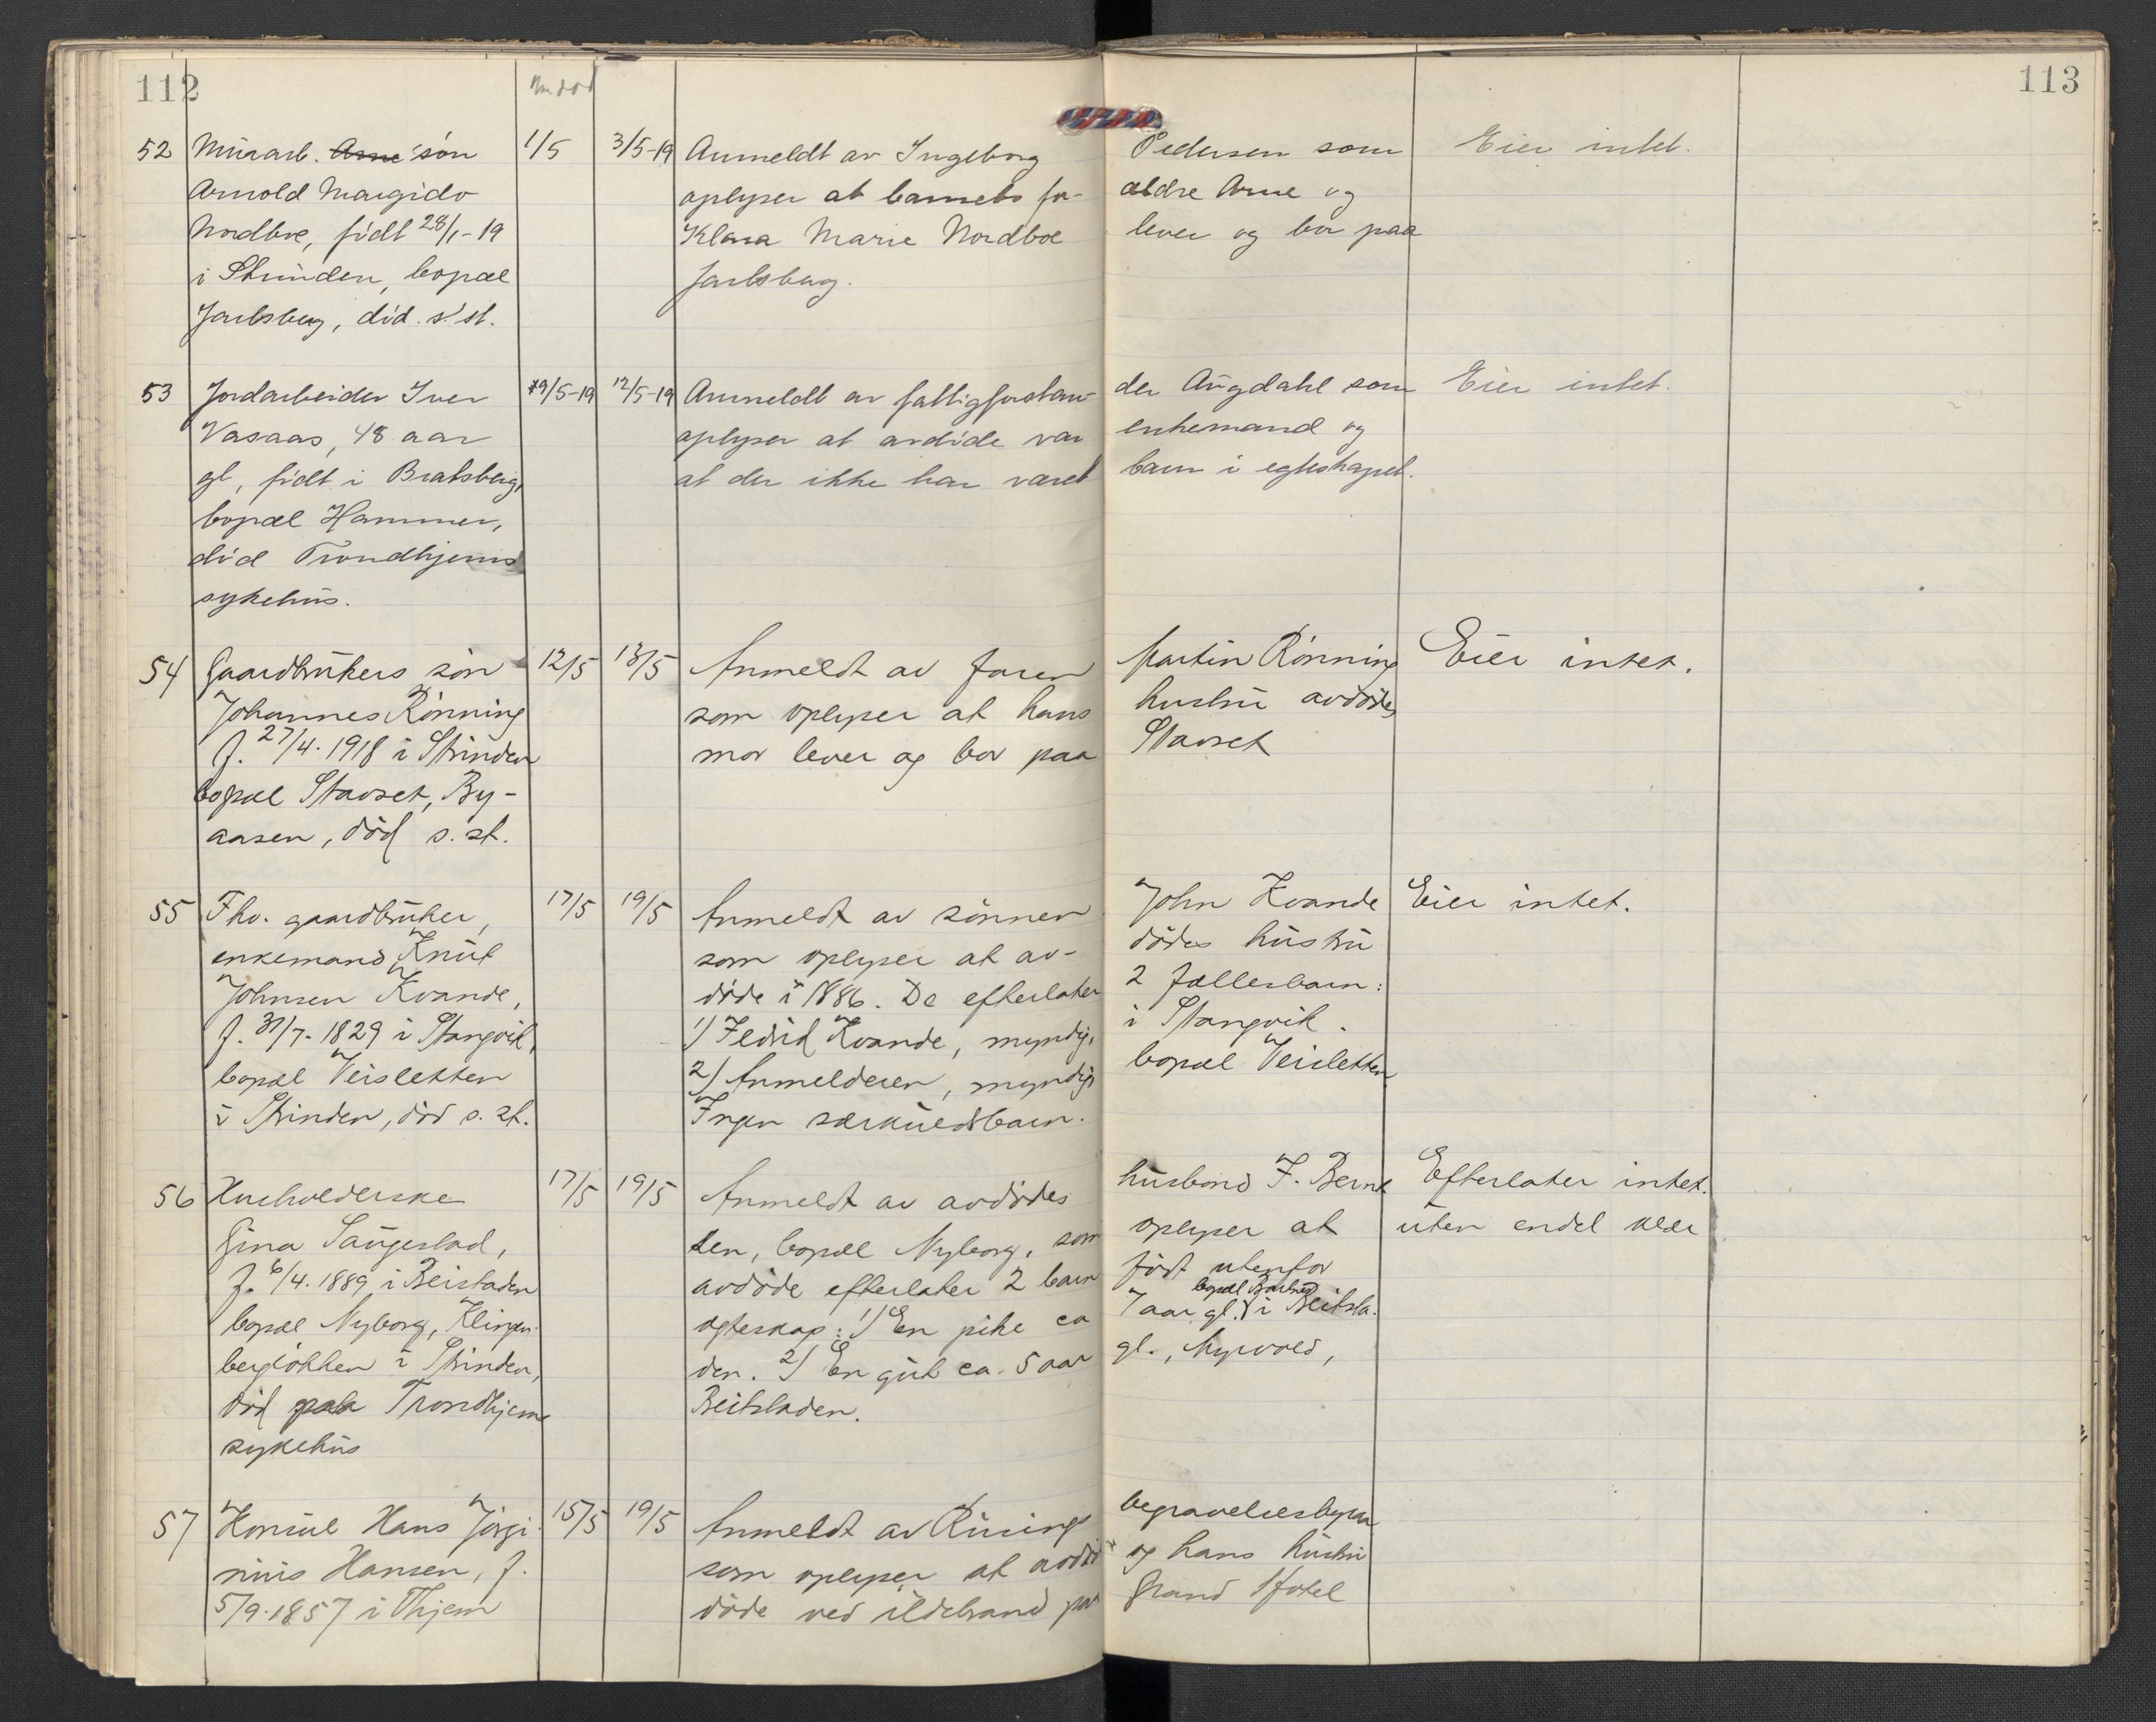 112
113
52 Murarb. Arne søn 1/5 3/5-19 Anmeldt av Ingeborg Pedersen som Eier intet.
Arnold Margido oplyser at barnets for- ældre Arne og
Nordboe, født 28/1-19 Klara Marie Nordboe lever og bor paa
i Strinden, bopæl Jarlsberg.
Jarlsberg, død s. st.
53 Jordarbeider Iver 9/5-19 12/5-19 Anmeldt av fattigforstan- der Augdahl som Eier intet.
Vasaas, 48 aar oplyser at avdøde var enkemand og
gl, født i Bratsberg, at der ikke har været barn i egteskapet.
bopæl Hammer,
død Trondhjems
sykehus.
54 Gaardbrukers søn 12/5 13/5 Anmeldt av faren Martin Rønning Eier intet.
Johannes Rønning som oplyser at hans hustru avdødes
f. 27/4. 1918 i Strinden mor lever og bor paa Stavset
bopæl Stavset, By-
aasen, død s. st.
55 Fhv. gaardbruker, 17/5 19/5 Anmeldt av sønnen John Kvande Eier intet.
enkemand Knut som oplyser at av- dødes hustru
Johnsen Kvande, døde i 1886. De efterlater 2 fællesbarn:
f. 31/7. 1829 i Stangvik, 1) Kvande, myndig, i Stangvik.
bopæl Veisletten 2) Anmelderen, myndig, bopæl Veisletten
i Strinden, død s. st. Ingen særkuldsbarn.
56 Husholderske 17/5 19/5 Anmeldt av avdødes husbond F. Bernt Efterlater intet.
Gina Saugestad, sen, bopæl Nyborg, som oplyser at uten endel klær
f. 6/4. 1889 i Beistaden avdøde efterlater 2 barn født utenfor
bopæl Nyborg, Klingen- egteskap: 1) En pike ca 7 aar gl. bopæl i Beitsta-
bergløkken i Strinden, den. 2) En gut ca. 5 aar gl., Myrvold,
død paa Trondhjems Beitstaden.
sykehus
57 Konsul Hans Jørgi- 15/5 19/5 Anmeldt av Rusings begravelsesbyraa
nius Hansen, f. som oplyser at avdøde og hans hustru
5/9. 1857 i Thjem døde ved ildebrand paa Grand Hotel